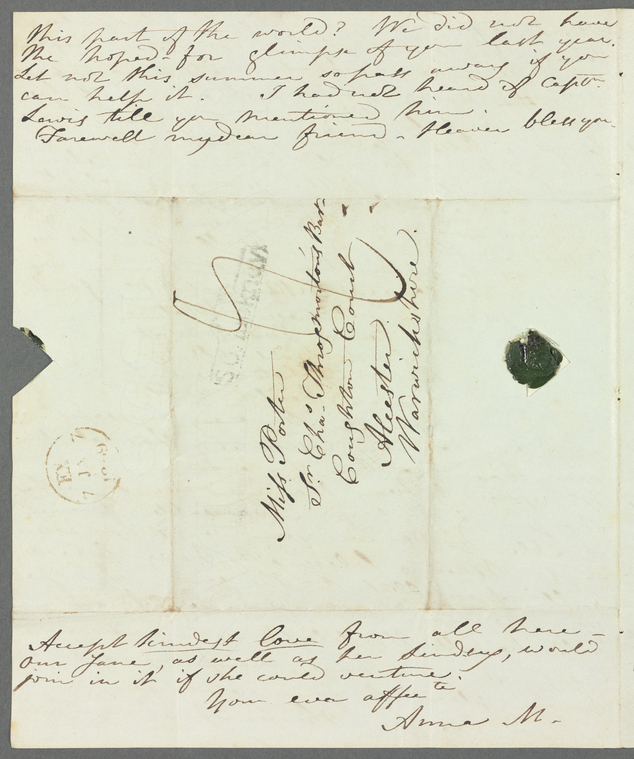 this part of the world? We did not have
the hoped-for glimpse of you last year.
Let not this summer so pass away if you
can help it. I had not heard of Captn.
Lewis till you mentioned him.
Farewell my dear friend - Heaven bless you.
Miss Porter
Sr Chas. Throgmorton's Bart.
Coughton Court
Alcester
Warwickshire.
7
JA
7
Accept kindest love from all here -
our Jane, as well as her Sindry, would
join in it if she could venture.
Your ever affecte
Anna M.